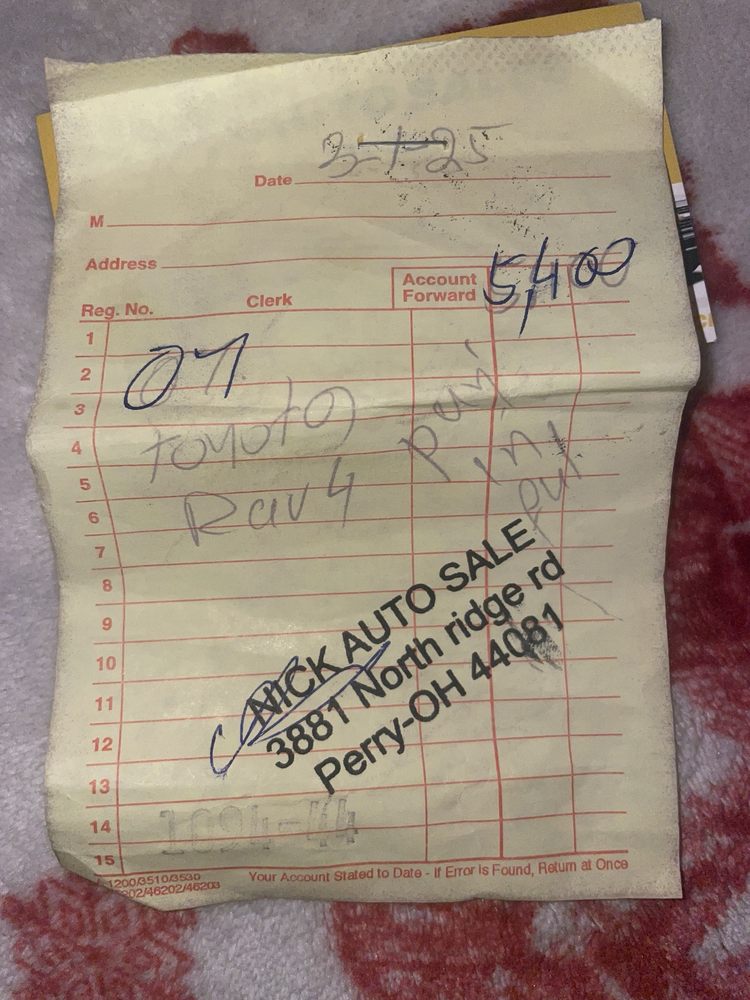 Date 3-1-25
M
Address
Reg. No. Clerk Account Forward 5,400
1
2 07
3
4 toyota
5
6 Rav4
paid
in
full
7
8
9
10
11
12
13
14
15
NICK AUTO SALE
3881 North ridge rd
Perry-OH 44081
1200/3510/3530
46202/46203
Your Account Stated to Date - If Error is Found, Return at Once